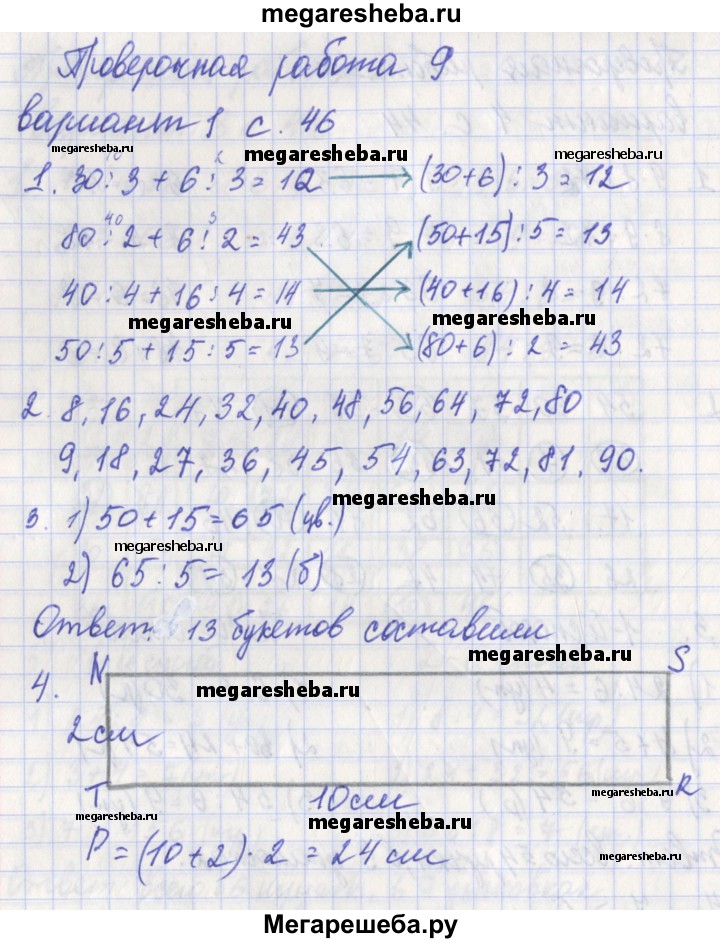 megaresheba.ru
Проверочная работа 9
вариант 1 с. 46
megaresheba.ru megaresheba.ru megaresheba.ru
1. 30 : 3 + 6 : 3 = 12 → (30+6) : 3 = 12
80 : 2 + 6 : 2 = 43 (50+15) : 5 = 13
40 : 4 + 16 : 4 = 14 → (40+16) : 4 = 14
megaresheba.ru megaresheba.ru
50 : 5 + 15 : 5 = 13 (80+6) : 2 = 43
2. 8, 16, 24, 32, 40, 48, 56, 64, 72, 80
9, 18, 27, 36, 45, 54, 63, 72, 81, 90.
megaresheba.ru
3. 1) 50 + 15 = 65 (цв.)
megaresheba.ru
2) 65 : 5 = 13 (б)
Ответ: 13 букетов составили
megaresheba.ru
4. N S
megaresheba.ru
2 см
T 10 см R
megaresheba.ru megaresheba.ru megaresheba.ru
P = (10+2) · 2 = 24 см
megaresheba.ru
Мегарешеба.ру